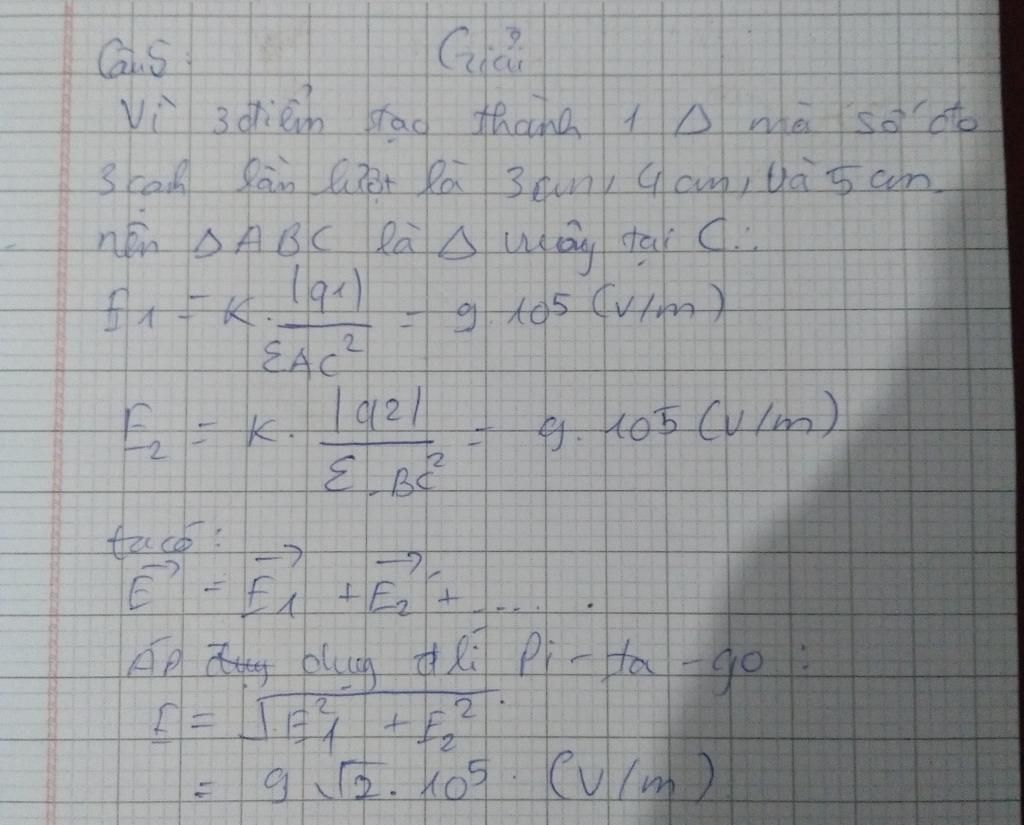 Câu 5: Giải
Vì 3 điểm tạo thành 1 Δ mà số đo
3 cạnh lần lượt là 3 cm, 4 cm, và 5 cm
nên Δ ABC là Δ vuông tại C.
E1 = K. |q1| / ΣAC² = 9.10⁵ (V/m)
E₂ = K. |q2| / Σ.BC² = 9.105 (V/m)
ta có:
E⃗ = E⃗1 + E⃗₂ + .... .
Áp dụng đlí Pi-ta-go:
E = √E1² + E₂²
= 9√2.10⁵. (V/m)